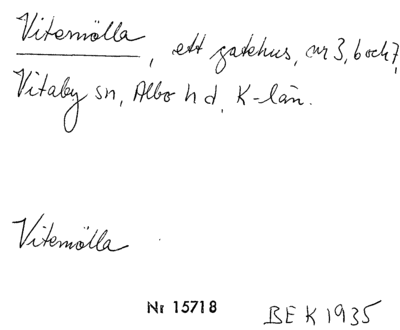 Vitemölla, ett gatehus, nr 3, b och 7,
Vitaby sn, Albo hd, K-län.
Vitemölla
Nr 15718 BEK 1935